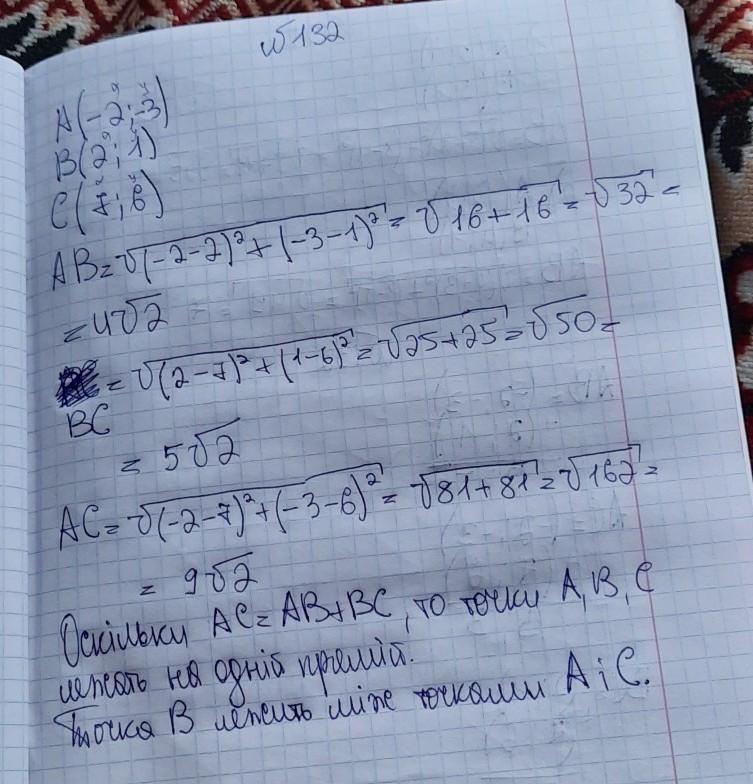 №132
A(-2;-3)
B(2;1)
C(7;6)
AB=√(-2-2)²+(-3-1)²=√16+16=√32=
=4√2
=√(2-7)²+(1-6)²=√25+25=√50=
BC
=5√2
AC=√(-2-7)²+(-3-6)²=√81+81=√162=
=9√2
Оскільки AC=AB+BC, то точки A, B, C
лежать на одній прямій.
Точка B лежить між точками A і C.